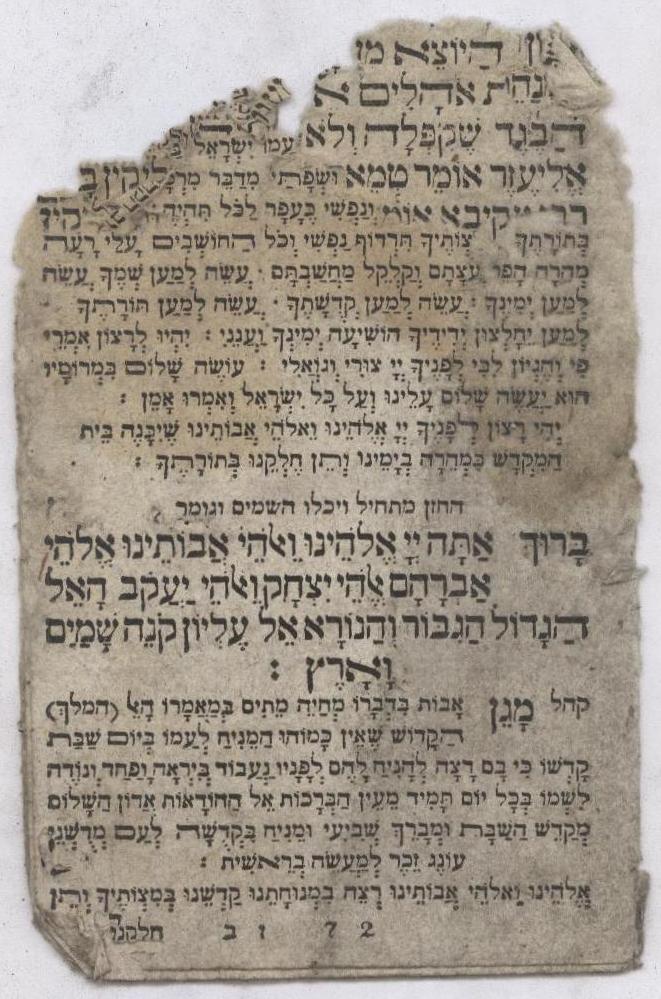 הַיּוֹצֵא מִן
אֹהָלִים
הַבֶּגֶד שֶׁקִּפְּלָהּ וְלֹא
עַמּוֹ יִשְׂרָאֵל
אֱלִיעֶזֶר אוֹמֵר טְמֵא וּשְׂפָתַי מִדַּבֵּר
עֲקִיבָא וְנַפְשִׁי כֶּעָפָר לַכֹּל תִּהְיֶה
בְּתוֹרָתֶךָ תִּרְדּוֹף נַפְשִׁי וְכֹל הַחוֹשְׁבִים עָלַי רָעָה
מְהֵרָה הָפֵר עֲצָתָם וְקַלְקֵל מַחֲשַׁבְתָּם · עֲשֵׂה לְמַעַן שְׁמֶךָ עֲשֵׂה
לְמַעַן יְמִינֶךָ · עֲשֵׂה לְמַעַן קְדֻשָּׁתֶךָ · עֲשֵׂה לְמַעַן תּוֹרָתֶךָ
לְמַעַן יֵחָלְצוּן יְדִידֶיךָ הוֹשִׁיעָה יְמִינְךָ וַעֲנֵנִי : יִהְיוּ לְרָצוֹן אִמְרֵי
פִי וְהֶגְיוֹן לִבִּי לְפָנֶיךָ יְיָ צוּרִי וְגוֹאֲלִי : עוֹשֶׂה שָׁלוֹם בִּמְרוֹמָיו
הוּא יַעֲשֶׂה שָׁלוֹם עָלֵינוּ וְעַל כָּל יִשְׂרָאֵל וְאִמְרוּ אָמֵן :
יְהִי רָצוֹן לְפָנֶיךָ יְיָ אֱלֹהֵינוּ וֵאלֹהֵי אֲבוֹתֵינוּ שֶׁיִּבָּנֶה בֵּית
הַמִּקְדָּשׁ בִּמְהֵרָה בְיָמֵינוּ וְתֵן חֶלְקֵנוּ בְּתוֹרָתֶךָ :
החזן מתחיל ויכלו השמים וגומר
בָּרוּךְ אַתָּה יְיָ אֱלֹהֵינוּ וֵאלֹהֵי אֲבוֹתֵינוּ אֱלֹהֵי
אַבְרָהָם אֱלֹהֵי יִצְחָק וֵאלֹהֵי יַעֲקֹב הָאֵל
הַגָּדוֹל הַגִּבּוֹר וְהַנּוֹרָא אֵל עֶלְיוֹן קֹנֵה שָׁמַיִם
וָאָרֶץ :
קהל מָגֵן אָבוֹת בִּדְבָרוֹ מְחַיֵּה מֵתִים בְּמַאֲמָרוֹ הָאֵל (המלך)
הַקָּדוֹשׁ שֶׁאֵין כָּמוֹהוּ הַמֵּנִיחַ לְעַמּוֹ בְּיוֹם שַׁבַּת
קָדְשׁוֹ כִּי בָם רָצָה לְהָנִיחַ לָהֶם לְפָנָיו נַעֲבוֹד בְּיִרְאָה וָפַחַד וְנוֹדֶה
לִשְׁמוֹ בְּכָל יוֹם תָּמִיד מֵעֵין הַבְּרָכוֹת אֵל הַהוֹדָאוֹת אֲדוֹן הַשָּׁלוֹם
מְקַדֵּשׁ הַשַּׁבָּת וּמְבָרֵךְ שְׁבִיעִי וּמֵנִיחַ בִּקְדֻשָּׁה לְעַם מְדֻשְּׁנֵי
עוֹנֶג זֵכֶר לְמַעֲשֵׂה בְרֵאשִׁית :
אֱלֹהֵינוּ וֵאלֹהֵי אֲבוֹתֵינוּ רְצֵה בִמְנוּחָתֵנוּ קַדְּשֵׁנוּ בְּמִצְוֹתֶיךָ וְתֵן
72 ז ב חלקנו